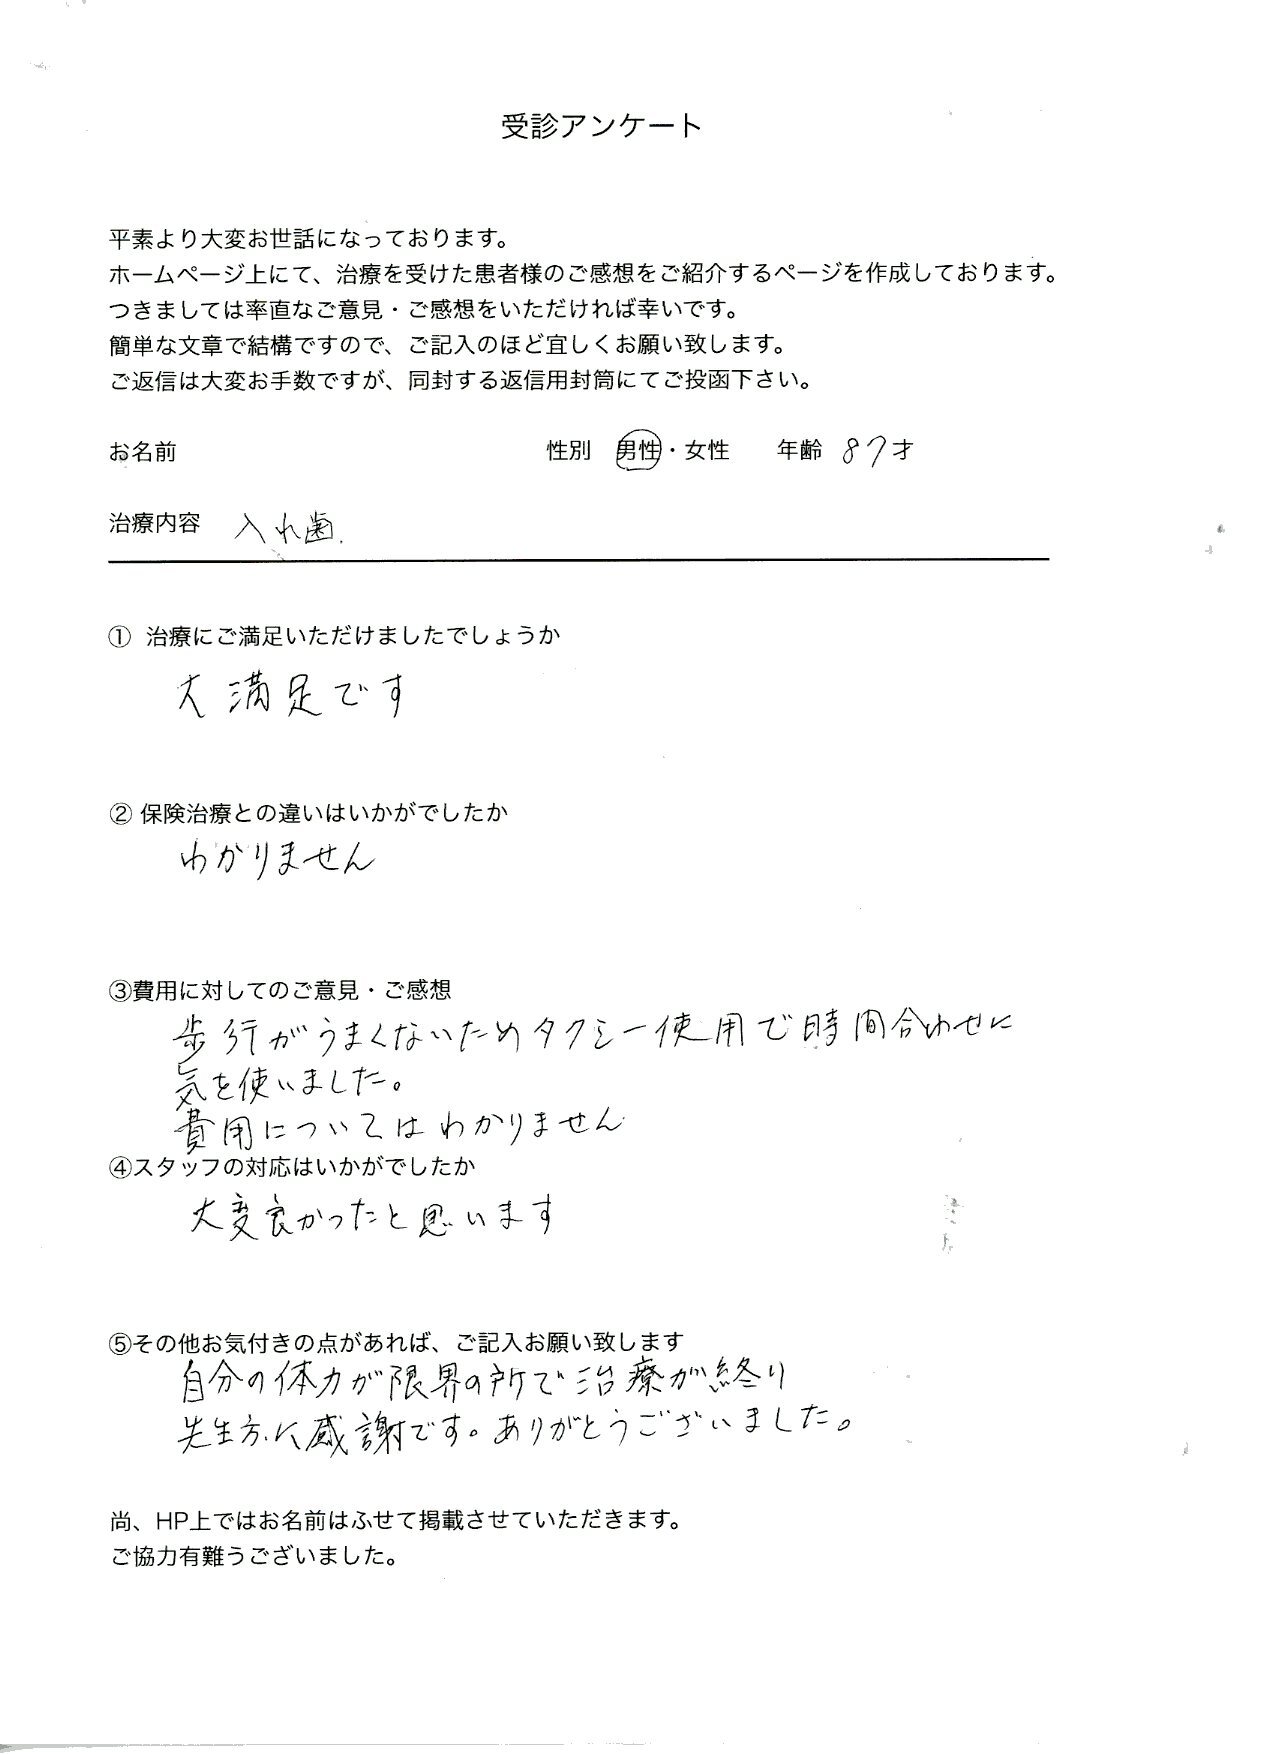 受診アンケート
平素より大変お世話になっております。
ホームページ上にて、治療を受けた患者様のご感想をご紹介するページを作成しております。
つきましては率直なご意見・ご感想をいただければ幸いです。
簡単な文章で結構ですので、ご記入のほど宜しくお願い致します。
ご返信は大変お手数ですが、同封する返信用封筒にてご投函下さい。
お名前 性別 男性・女性 年齢 87才
治療内容 入れ歯.
① 治療にご満足いただけましたでしょうか
大満足です
② 保険治療との違いはいかがでしたか
わかりません
③費用に対してのご意見・ご感想
歩行がうまくないためタクシー使用で時間合わせに
気を使いました。
費用についてはわかりません
④スタッフの対応はいかがでしたか
大変良かったと思います
⑤その他お気付きの点があれば、ご記入お願い致します
自分の体力が限界の所で治療が終り
先生方に感謝です。ありがとうございました。
尚、HP上ではお名前はふせて掲載させていただきます。
ご協力有難うございました。